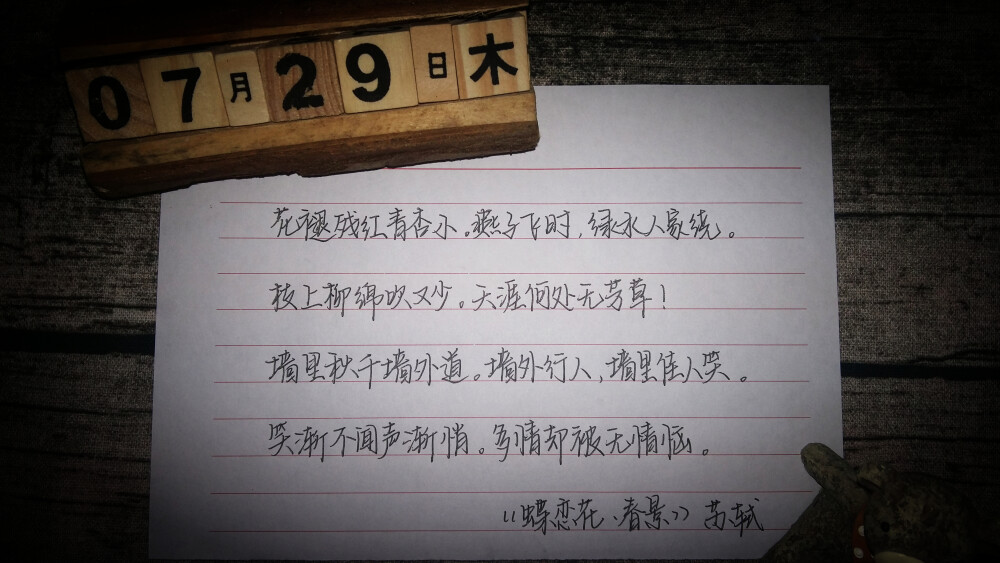 07月29日木
花褪残红青杏小。燕子飞时,绿水人家绕。
枝上柳绵吹又少。天涯何处无芳草!
墙里秋千墙外道。墙外行人,墙里佳人笑。
笑渐不闻声渐悄。多情却被无情恼。
《蝶恋花·春景》苏轼